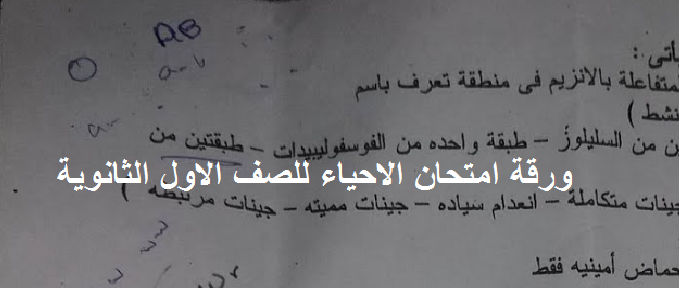 يأتى :
المتفاعلة بالانزيم فى منطقة تعرف باسم
نشط )
ن من السليلوز – طبقة واحده من الفوسفوليبيدات – طبقتين من
ورقة امتحان الاحياء للصف الاول الثانوية
جينات متكاملة – انعدام سياده – جينات مميته – جينات مرتبطه )
حماض أمينيه فقط
AB